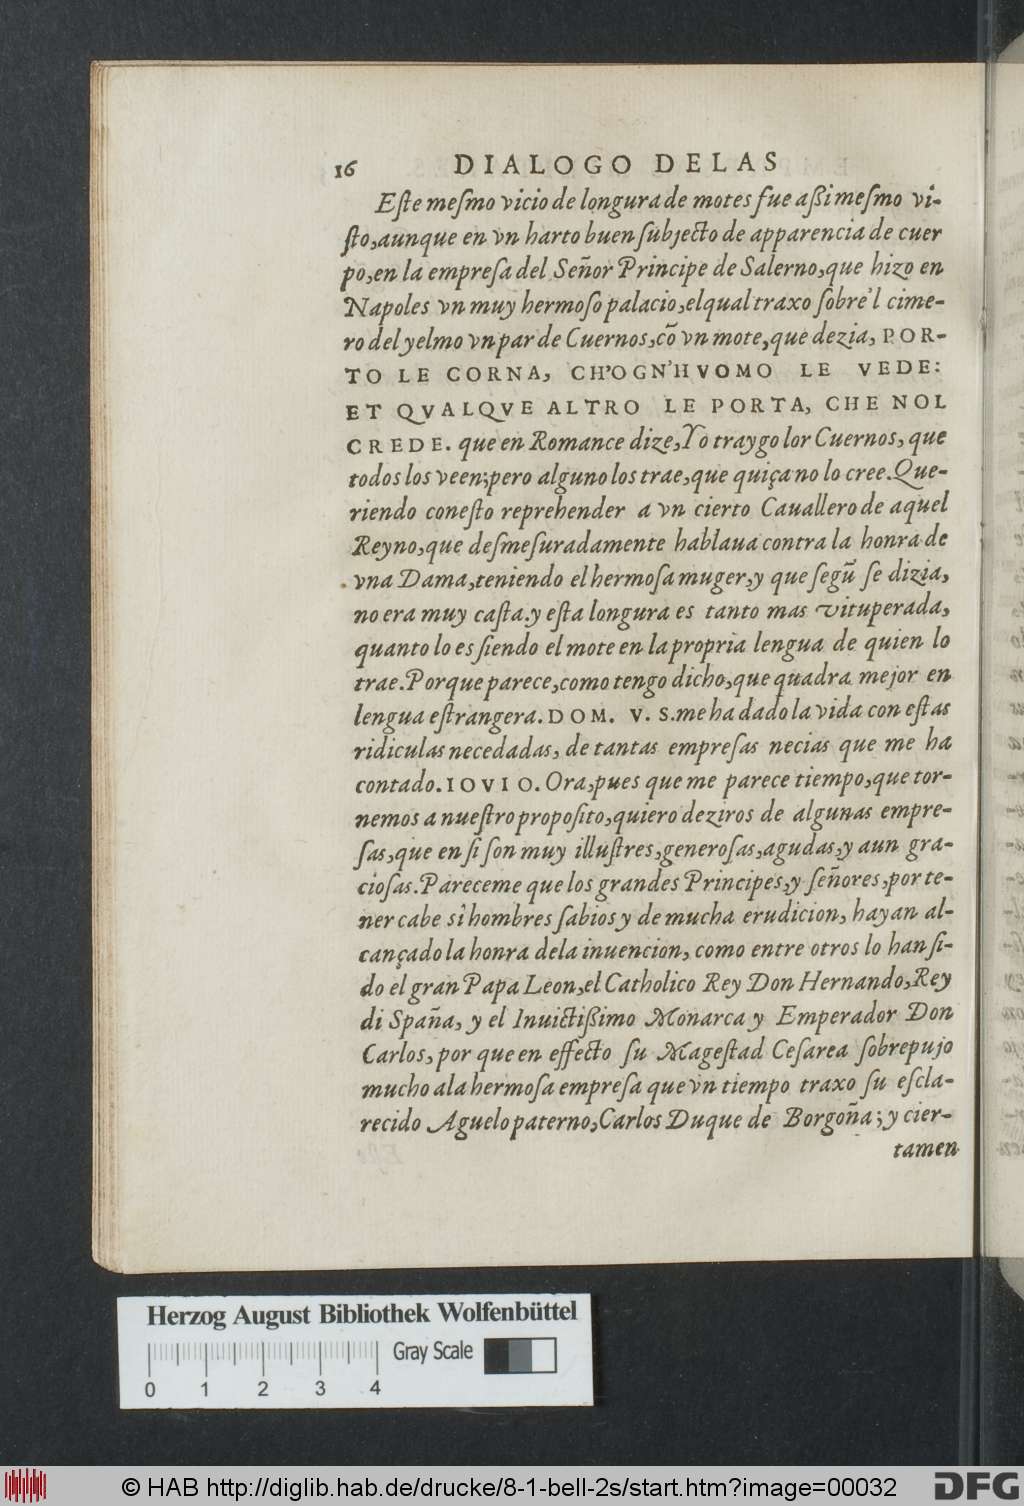 16 DIALOGO DELAS
Este mesmo vicio de longura de motes fue aßi mesmo vi-
sto, aunque en vn harto buen subjecto de apparencia de cuer
po, en la empresa del Señor Principe de Salerno, que hizo en
Napoles vn muy hermoso palacio, elqual traxo sobre'l cime-
ro del yelmo vn par de Cuernos, cõ vn mote, que dezia, POR-
TO LE CORNA, CH'OGN'HVOMO LE VEDE:
ET QVALQVE ALTRO LE PORTA, CHE NOL
CREDE. que en Romance dize, Yo traygo lor Cuernos, que
todos los veen; pero alguno los trae, que quiça no lo cree. Que-
riendo conesto reprehender a vn cierto Cauallero de aquel
Reyno, que desmesuradamente hablaua contra la honra de
vna Dama, teniendo el hermosa muger, y que segũ se dizia,
no era muy casta. y esta longura es tanto mas vituperada,
quanto lo es siendo el mote en la propria lengua de quien lo
trae. Porque parece, como tengo dicho, que quadra mejor en
lengua estrangera. DOM. V. S. me ha dado la vida con estas
ridiculas necedadas, de tantas empresas necias que me ha
contado. IOVIO. Ora, pues que me parece tiempo, que tor-
nemos a nuestro proposito, quiero deziros de algunas empre-
sas, que en si son muy illustres, generosas, agudas, y aun gra-
ciosas. Pareceme que los grandes Principes, y señores, por te-
ner cabe sì hombres sabios y de mucha erudicion, hayan al-
cançado la honra dela inuencion, como entre otros lo han si-
do el gran Papa Leon, el Catholico Rey Don Hernando, Rey
di Spaña, y el Inuictißimo Monarca y Emperador Don
Carlos, por que en effecto su Magestad Cesarea sobrepujo
mucho ala hermosa empresa que vn tiempo traxo su escla-
recido Aguelo paterno, Carlos Duque de Borgoña; y cier-
tamen
Herzog August Bibliothek Wolfenbüttel
Gray Scale
0 1 2 3 4
© HAB http://diglib.hab.de/drucke/8-1-bell-2s/start.htm?image=00032
DFG